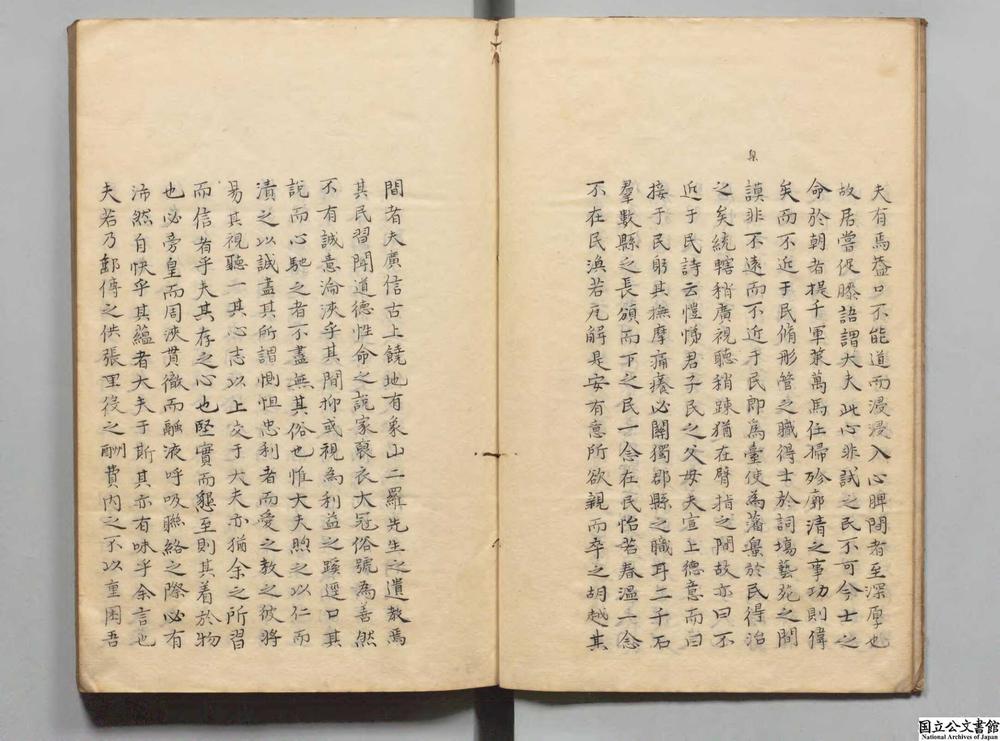 夫有焉益口不能道而浸浸入心脾間者至深厚也
故居嘗促膝語謂大夫此心非試之民不可今士之
命於朝者提千軍策萬馬任掃殄廓清之事功則偉
矣而不近于民脩彤管之職得士於詞塲藝苑之間
謨非不遠而不近于民即為臺使為藩臬於民得治
臬
之矣統轄稍廣視聽稍踈猶在臂指之間故亦曰不
近于民詩云愷悌君子民之父母夫宣上德意而曰
接于民躬其撫摩痛癢必關獨郡縣之職耳二千石
羣數縣之長頒而下之民一念在民怡若春溫一念
不在民渙若瓦解是安有意所欲親而卒之胡越其
間者夫廣信古上饒地有象山二羅先生之遺教焉
其民習聞道德性命之說家裒衣大冠俗號為善然
不有誠意淪浹乎其間抑或視為利益之蹊逕口其
說而心馳之者不盡無其俗也惟大夫煦之以仁而
漬之以誠盡其所謂惻怛忠利者而愛之教之彼將
易其視聽一其心志以上交于大夫亦猶余之所習
而信者乎夫其存之心也堅實而懇至則其着於物
也必旁皇而周浹貫徹而融液呼吸聯絡之際必有
沛然自快乎其蘊者大夫于斯其亦有味乎余言也
夫若乃郵傳之供張里役之酬費內之不以重困吾
国立公文書館
National Archives of Japan